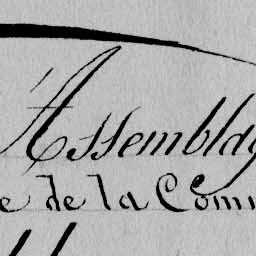 l'Assemblay
e de la Com